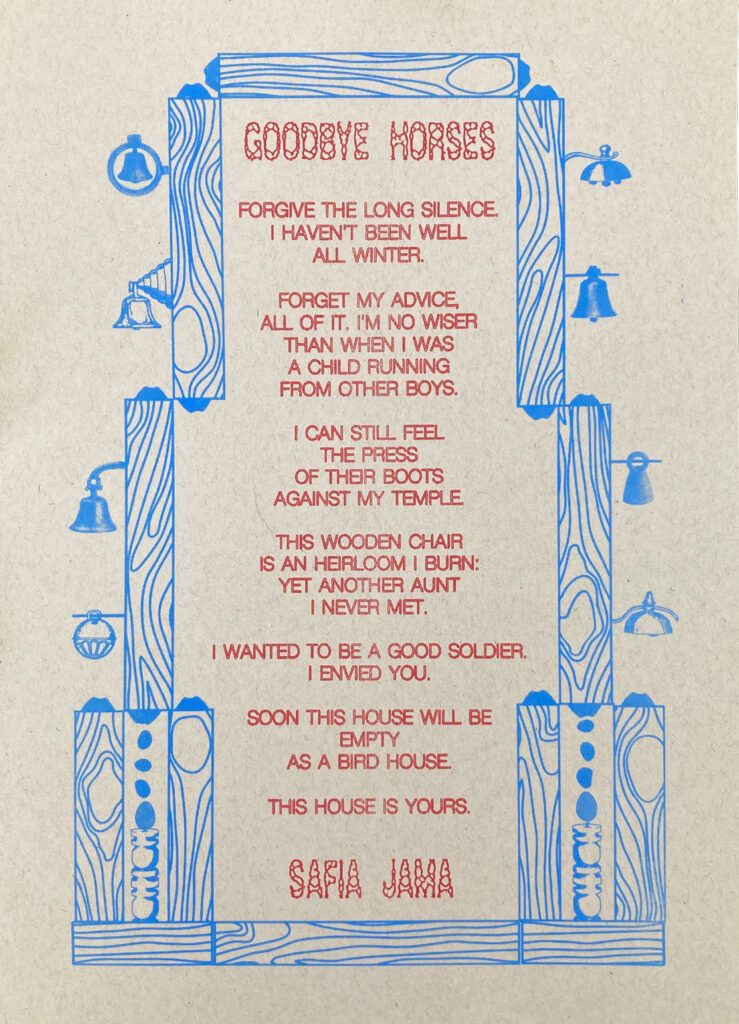 GOODBYE HORSES
FORGIVE THE LONG SILENCE.
I HAVEN'T BEEN WELL
ALL WINTER.
FORGET MY ADVICE,
ALL OF IT. I'M NO WISER
THAN WHEN I WAS
A CHILD RUNNING
FROM OTHER BOYS.
I CAN STILL FEEL
THE PRESS
OF THEIR BOOTS
AGAINST MY TEMPLE.
THIS WOODEN CHAIR
IS AN HEIRLOOM I BURN:
YET ANOTHER AUNT
I NEVER MET.
I WANTED TO BE A GOOD SOLDIER.
I ENVIED YOU.
SOON THIS HOUSE WILL BE
EMPTY
AS A BIRD HOUSE.
THIS HOUSE IS YOURS.
SAFIA JAMA